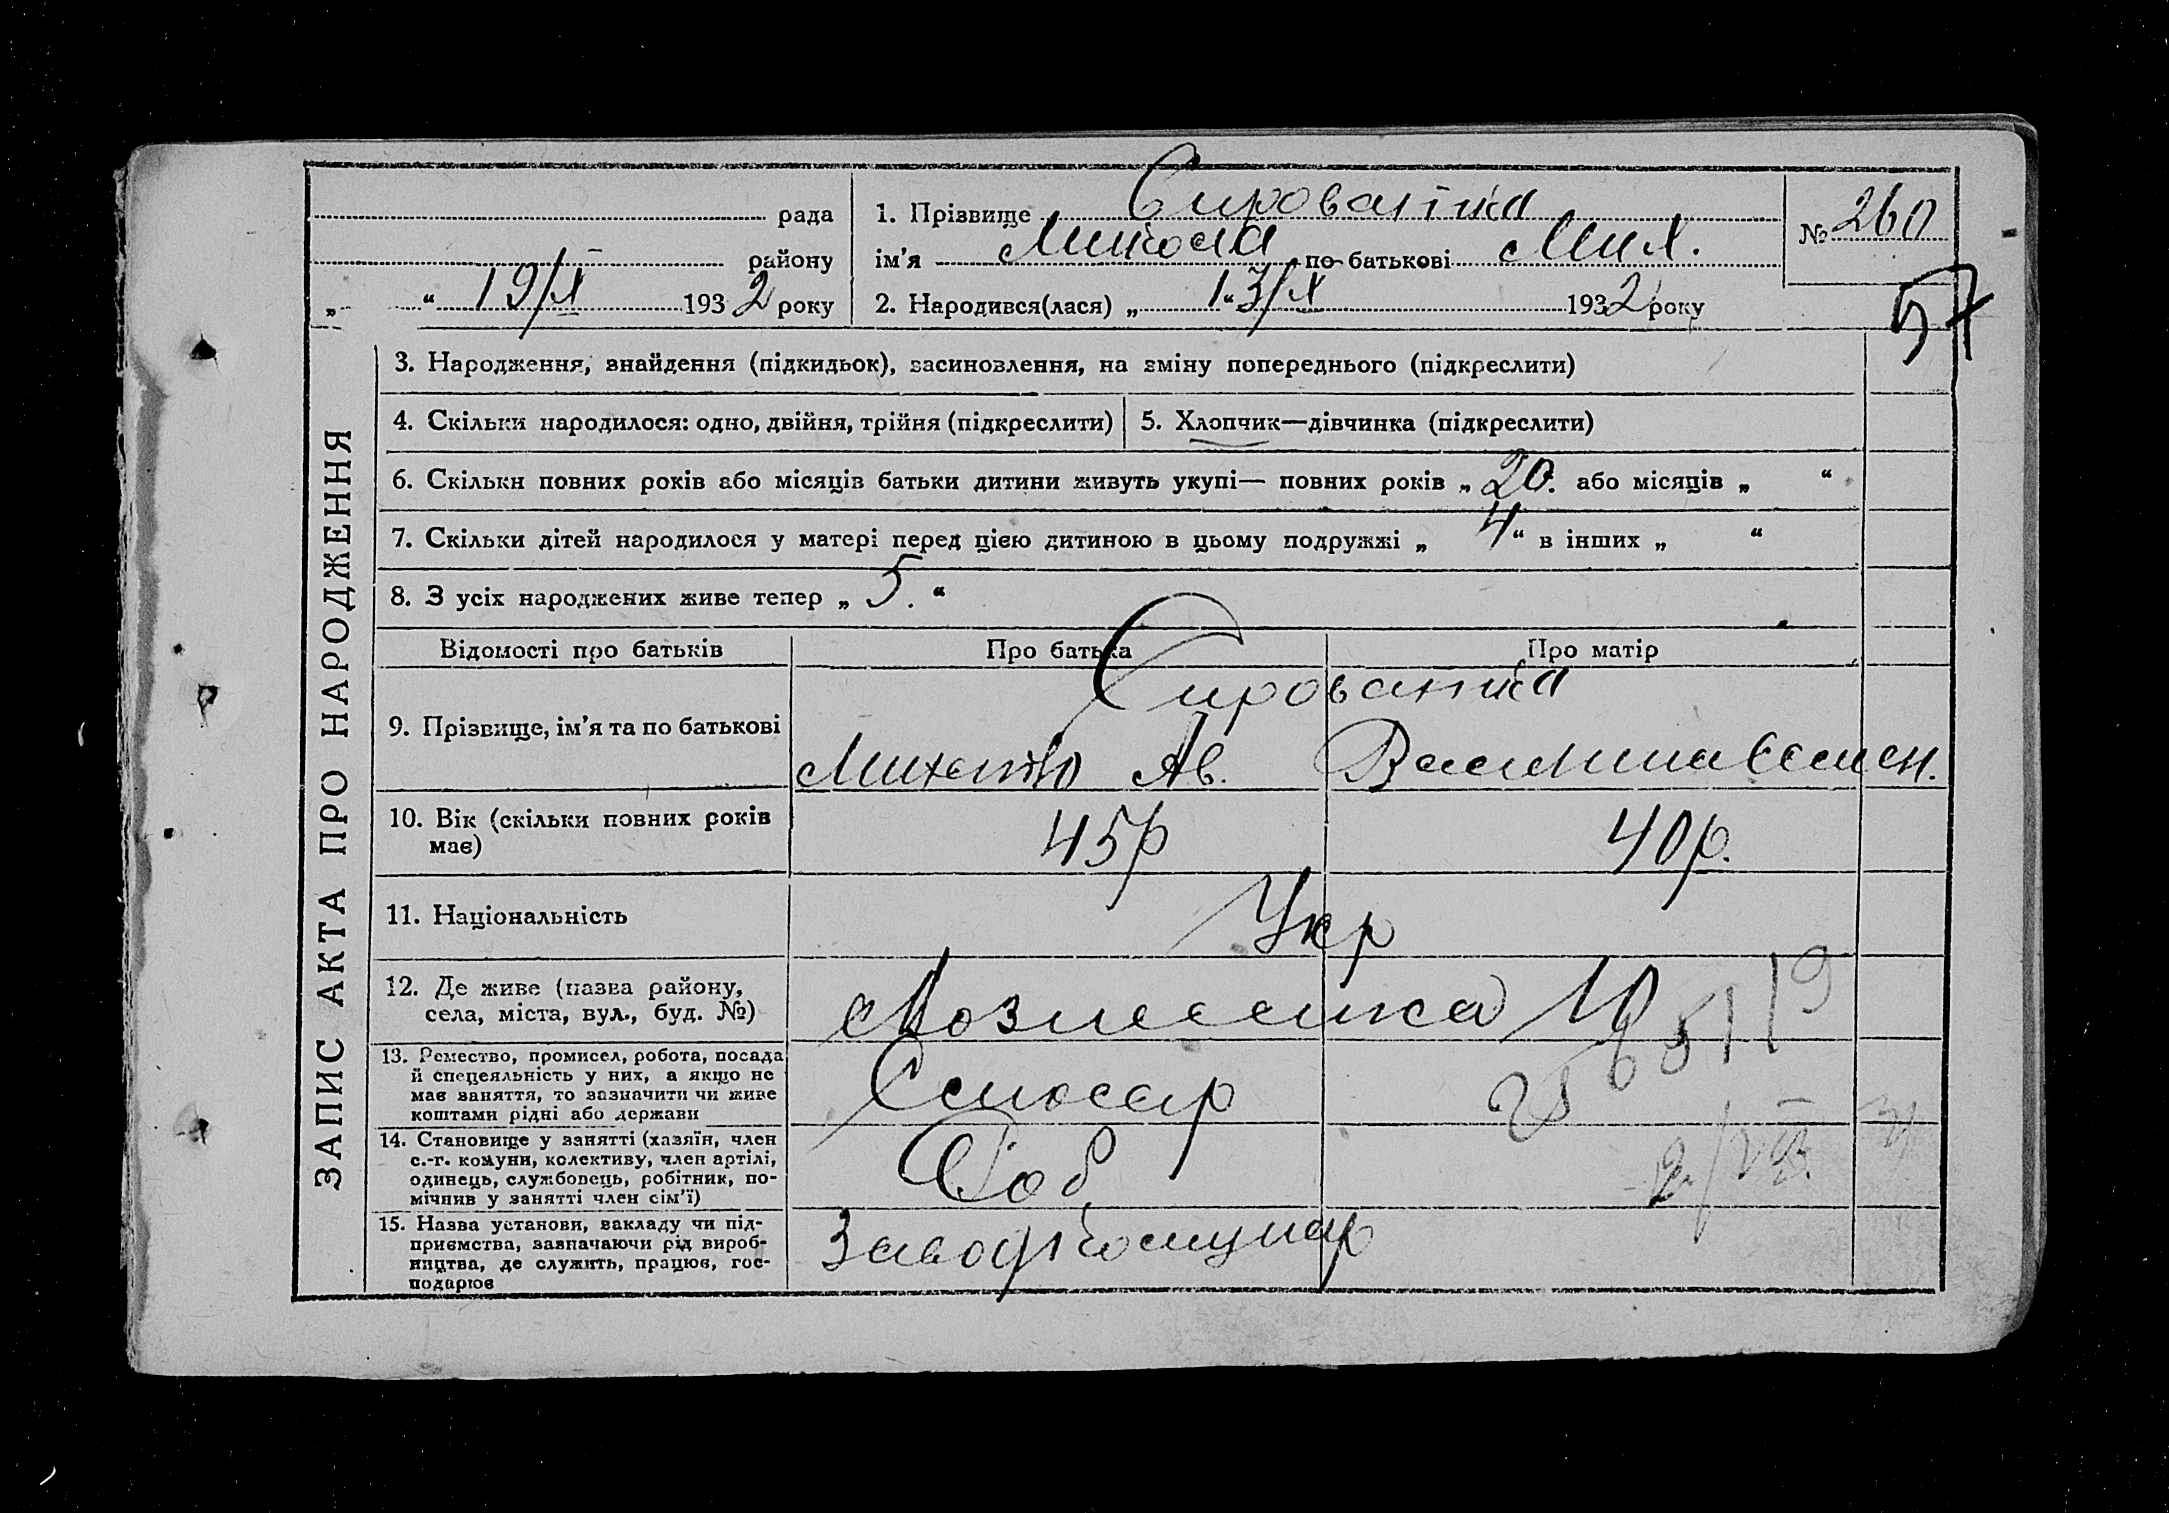 рада
району
„ “ 19/X 1932 року
1. Прізвище Сированка
ім’я Микола по батькові Мих.
2. Народився(лася) „ 13/X 1932 року
№ 260
57
ЗАПИС АКТА ПРО НАРОДЖЕННЯ
3. Народження, знайдення (підкидьок), засиновлення, на зміну попереднього (підкреслити)
4. Скільки народилося: одно, двійня, трійня (підкреслити)
5. Хлопчик—дівчинка (підкреслити)
6. Скільки повних років або місяців батьки дитини живуть укупі— повних років „ 20. або місяців „ “
7. Скільки дітей народилося у матері перед цією дитиною в цьому подружжі „ 4 “ в інших „ “
8. З усіх народжених живе тепер „ 5. “
Відомості про батьків
Про батька
Про матір
9. Прізвище, ім’я та по батькові
Сированка
Михайло Ав.
Семен.
10. Вік (скільки повних років
має)
45р
40р.
11. Національність
Укр
12. Де живе (назва району,
села, міста, вул., буд. №)
Вознесенка 10
13. Ремество, промисел, робота, посада
й спецеяльність у них, а якщо не
має заняття, то зазначити чи живе
коштами рідні або держави
Слюсар
14. Становище у занятті (хазяїн, член
с.-г. комуни, колективу, член артілі,
одинець, службовець, робітник, по-
мічнив у занятті член сім’ї)
Роб
15. Назва установи, закладу чи під-
приємства, зазначаючи рід вироб-
ництва, де служить, працює, гос-
подарює
Завод Комунар